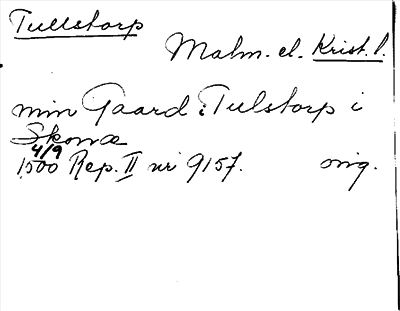 Tullstorp
Malm. el. Krist. l.
min Gaard i Tulstorp i
Skone
4/9
1500 Rep. II nr 9157. orig.